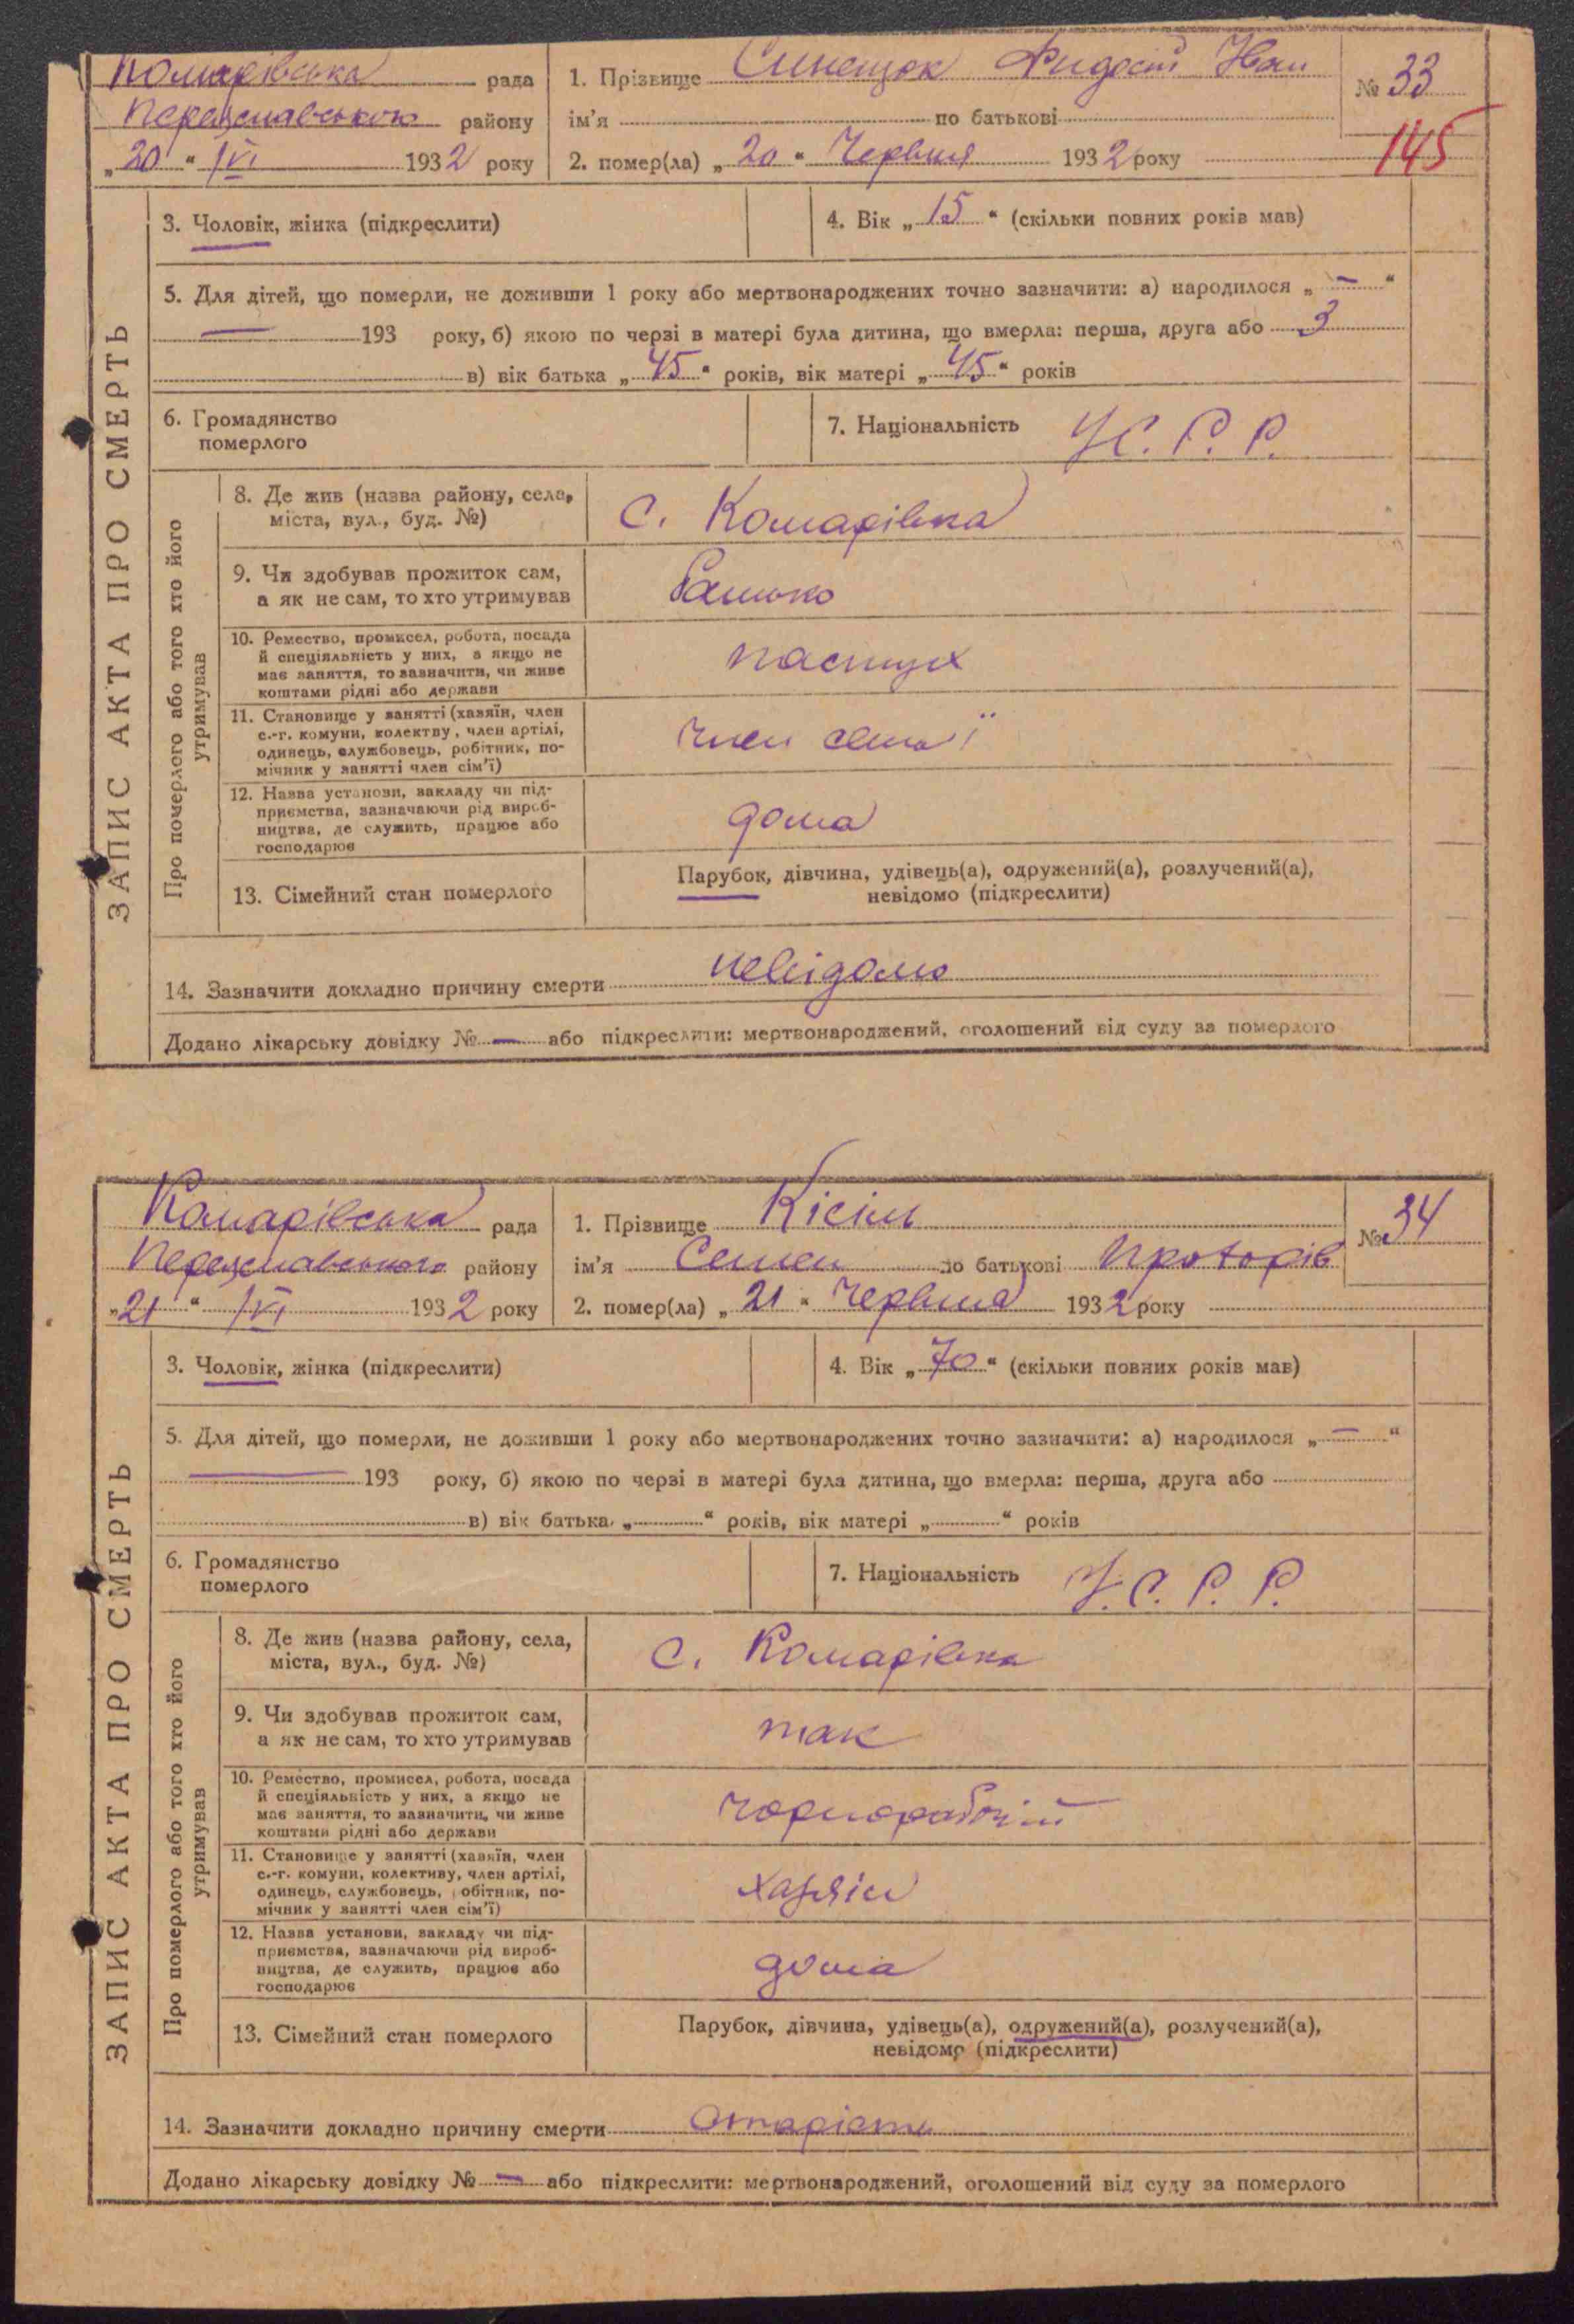 Комарівська рада
Переяславського району
„20“ /VI 1932 року
1. Прізвище Синещок Фидосій Іван
ім’я по батькові
2. помер(ла) „20“ Червня 1932 року
№ 33
145
ЗАПИС АКТА ПРО СМЕРТЬ
3. Чоловік, жінка (підкреслити)
4. Вік „15“ (скільки повних років мав)
5. Для дітей, що померли, не доживши 1 року або мертвонароджених точно зазначити: а) народилося „—“
— 193 року, б) якою по черзі в матері була дитина, що вмерла: перша, друга або 3
в) вік батька „45“ років, вік матері „45“ років
6. Громадянство
померлого
7. Національність У.С.Р.Р.
Про померлого або того хто його
утримував
8. Де жив (назва району, села,
міста, вул., буд. №)
с. Комарівка
9. Чи здобував прожиток сам,
а як не сам, то хто утримував
батько
10. Ремество, промисел, робота, посада
й спеціяльність у них, а якщо не
має заняття, то зазначити, чи живе
коштами рідні або держави
пастух
11. Становище у занятті (хазяїн, член
с.-г. комуни, колектву, член артілі,
одинець, службовець, робітник, по-
мічник у занятті член сім’ї)
член семьї
12. Назва установи, закладу чи під-
приємства, зазначаючи рід вироб-
ництва, де служить, працює або
господарює
дома
13. Сімейний стан померлого
Парубок, дівчина, удівець(а), одружений(а), розлучений(а),
невідомо (підкреслити)
14. Зазначити докладно причину смерти невідомо
Додано лікарську довідку № — або підкреслити: мертвонароджений, оголошений від суду за померлого
Комарівська рада
Переяславського району
„21“ /VI 1932 року
1. Прізвище Кісіль
ім’я Семен по батькові
2. помер(ла) „21“ Червня 1932 року
№ 34
ЗАПИС АКТА ПРО СМЕРТЬ
3. Чоловік, жінка (підкреслити)
4. Вік „70“ (скільки повних років мав)
5. Для дітей, що померли, не доживши 1 року або мертвонароджених точно зазначити: а) народилося „—“
— 193 року, б) якою по черзі в матері була дитина, що вмерла: перша, друга або
в) вік батька „“ років, вік матері „“ років
6. Громадянство
померлого
7. Національність У.С.Р.Р.
Про померлого або того хто його
утримував
8. Де жив (назва району, села,
міста, вул., буд. №)
с. Комарівка
9. Чи здобував прожиток сам,
а як не сам, то хто утримував
так
10. Ремество, промисел, робота, посада
й спеціяльність у них, а якщо не
має заняття, то зазначити, чи живе
коштами рідні або держави
чорнорабочій
11. Становище у занятті (хазяїн, член
с.-г. комуни, колективу, член артілі,
одинець, службовець, робітник, по-
мічник у занятті член сім’ї)
хазяін
12. Назва установи, закладу чи під-
приємства, зазначаючи рід вироб-
ництва, де служить, працює або
господарює
дома
13. Сімейний стан померлого
Парубок, дівчина, удівець(а), одружений(а), розлучений(а),
невідомо (підкреслити)
14. Зазначити докладно причину смерти
Додано лікарську довідку № — або підкреслити: мертвонароджений, оголошений від суду за померлого